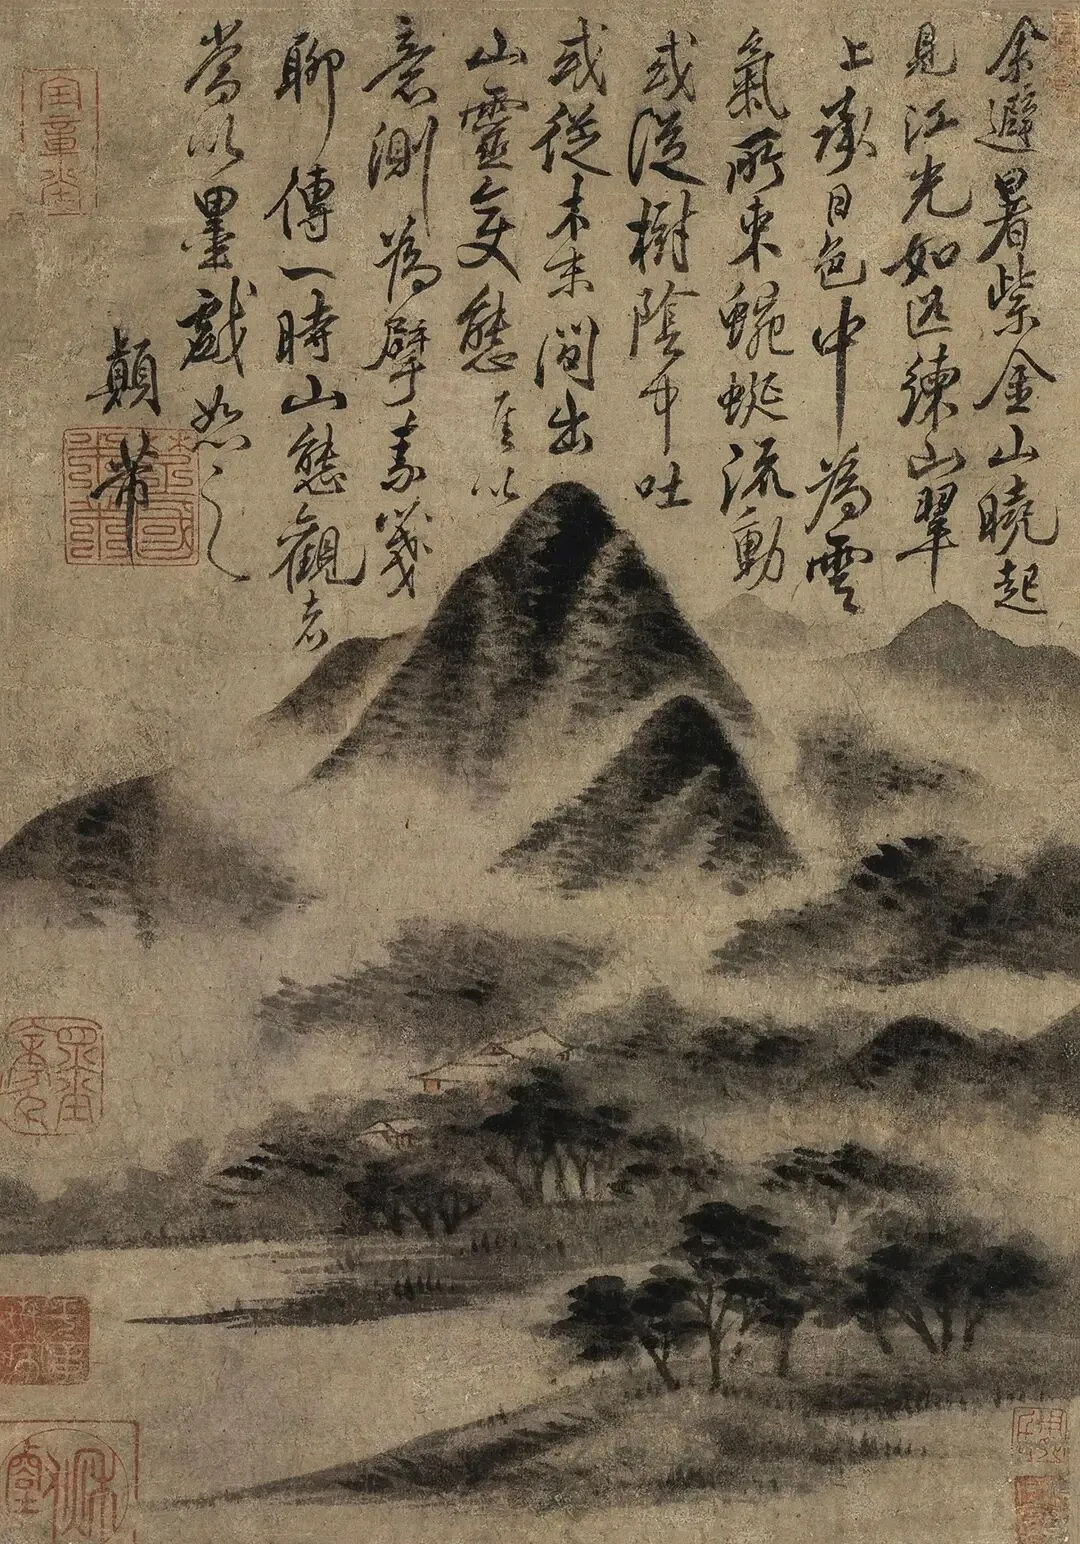 余避暑紫金山曉起
見江光如匹練山翠
上承日色中為雲
氣所束蜿蜒流動
或從樹陰中吐
或從木末間出
山靈變態有以
意測為擘素箋
聊傳一時山態觀者
當以墨戲如之
顛芾